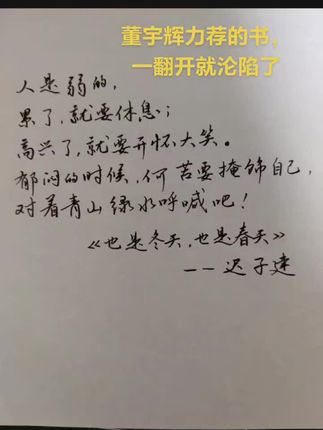 董宇辉力荐的书，
一翻开就沦陷了
人是弱的，
累了，就要休息；
高兴了，就要开怀大笑。
郁闷的时候，何苦要掩饰自己，
对着青山绿水呼喊吧！
《也是冬天，也是春天》
——迟子建